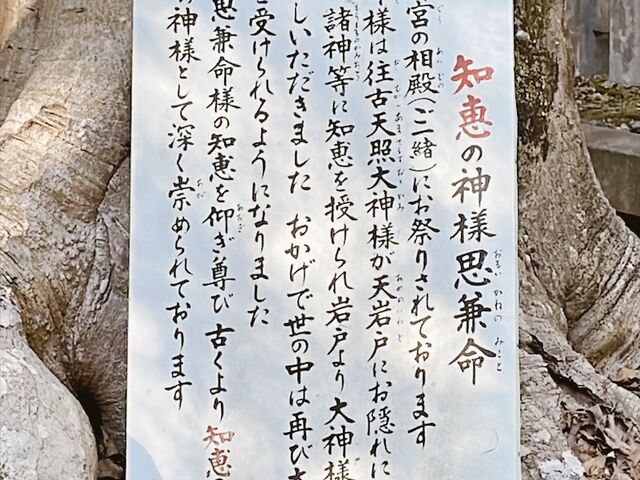 知恵の神様思兼命
宮の相殿(ご一緒)にお祭りされております
様は往古天照大神様が天岩戸にお隠れに
諸神等に知恵を授けられ岩戸より大神様
しいただきました おかげで世の中は再び
を受けられるようになりました
思兼命様の知恵を仰ぎ尊び古くより知恵
の神様として深く崇められております